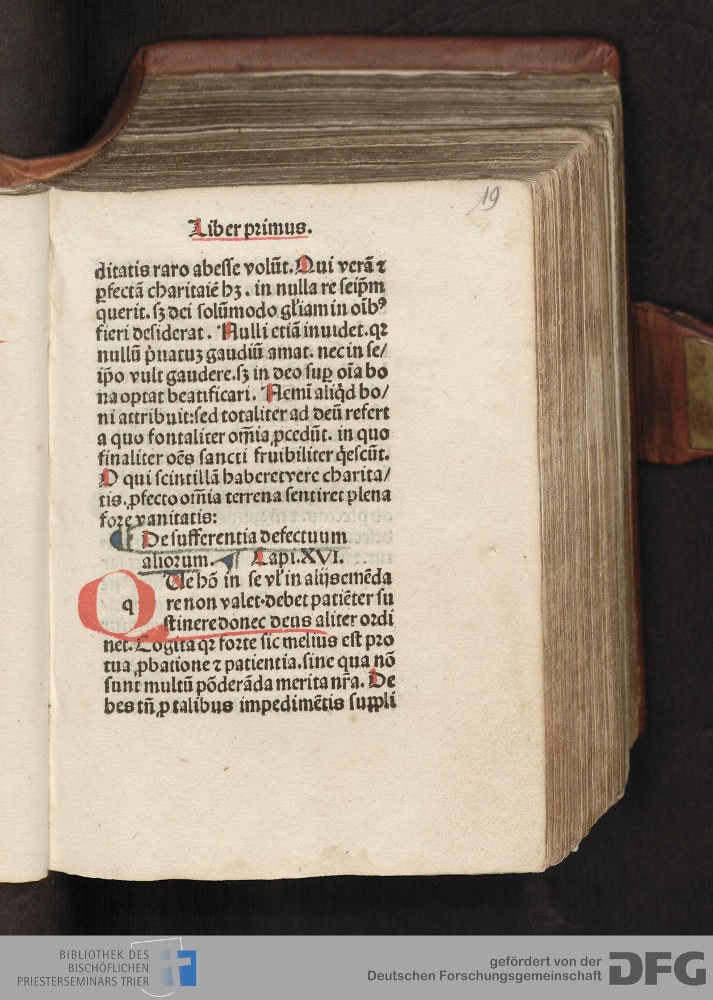 19
Liber primus.
ditatis raro abesse volūt. Qui verā ⁊
ꝑfectā charitatē hꝫ. in nulla re seip̄m
querit. sꝫ dei solūmodo gl̄iam in oīb⁹
fieri desiderat. Nulli etiā inuidet. qꝛ
nullū p̄uatuꝫ gaudiū amat. nec in se/
ip̄o vult gaudere. sꝫ in deo suꝑ oīa bo
na optat beatificari. Nemī aliq̇d bo/
ni attribuit: sed totaliter ad deū refert
a quo fontaliter om̄ia ꝓcedūt. in quo
finaliter oēs sancti fruibiliter q̇escūt.
O qui scintillā haberet vere charita/
tis. ꝓfecto om̄ia terrena sentiret plena
fore vanitatis:
¶ De sufferentia defectuum
aliorum. ¶ Capi. XVI.
QUe hō in se vl̓ in alijs emēda
re non valet. debet patiēter su
stinere donec deus aliter ordi
net. Cogita qꝛ forte sic melius est pro
tua ꝓbatione ⁊ patientia. sine qua nō
sunt multū pōderāda merita nr̄a. De
bes tn̄ ꝓ talibus impedimētis suppli
BIBLIOTHEK DES
BISCHÖFLICHEN
PRIESTERSEMINARS TRIER
gefördert von der
Deutschen Forschungsgemeinschaft
DFG